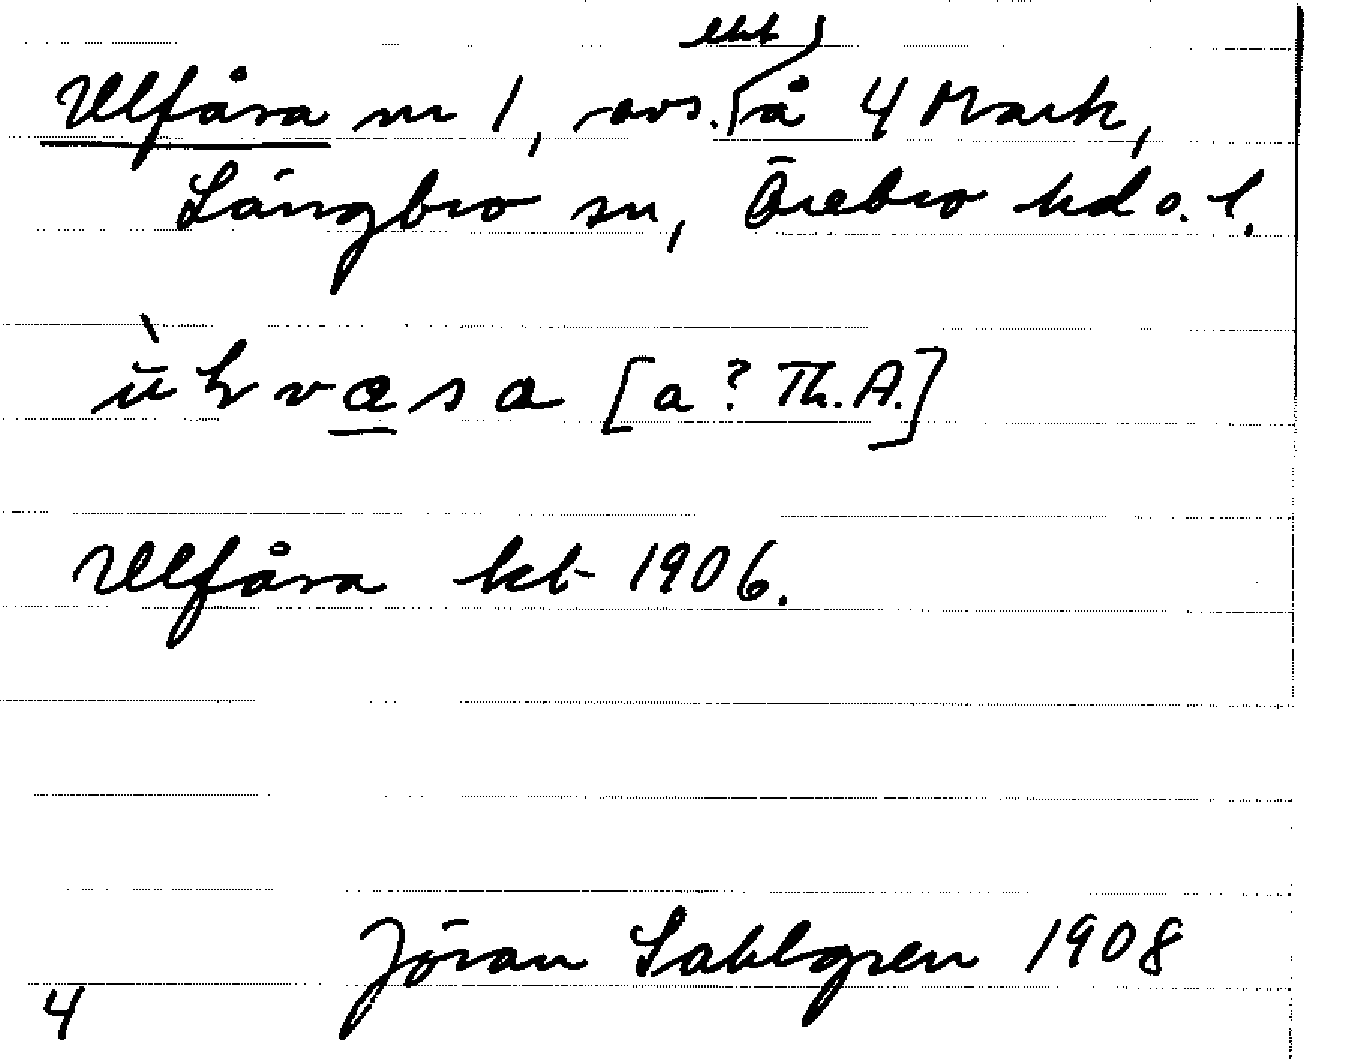 Ulfåsa nr 1, avs. ekt å 4 Mark,
Längbro sn, Örebro hd o. l.
ùkvasa [a? Th. A.]
Ulfåsa kt 1906.
Jöran Sahlgren 1908
4